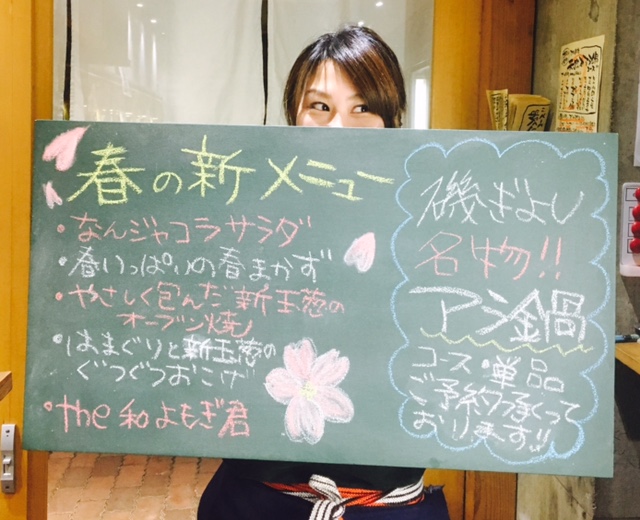 春の新メニュー
・なんジャコラサラダ
・春いっぱいの春まかず
・やさしく包んだ新玉葱の
オーブン焼
・はまぐりと新玉葱の
ぐつぐつおこげ
・the 和よもぎ君
磯ぎよし
名物!!
アラ鍋
コース・単品
ご予約承って
おります!!